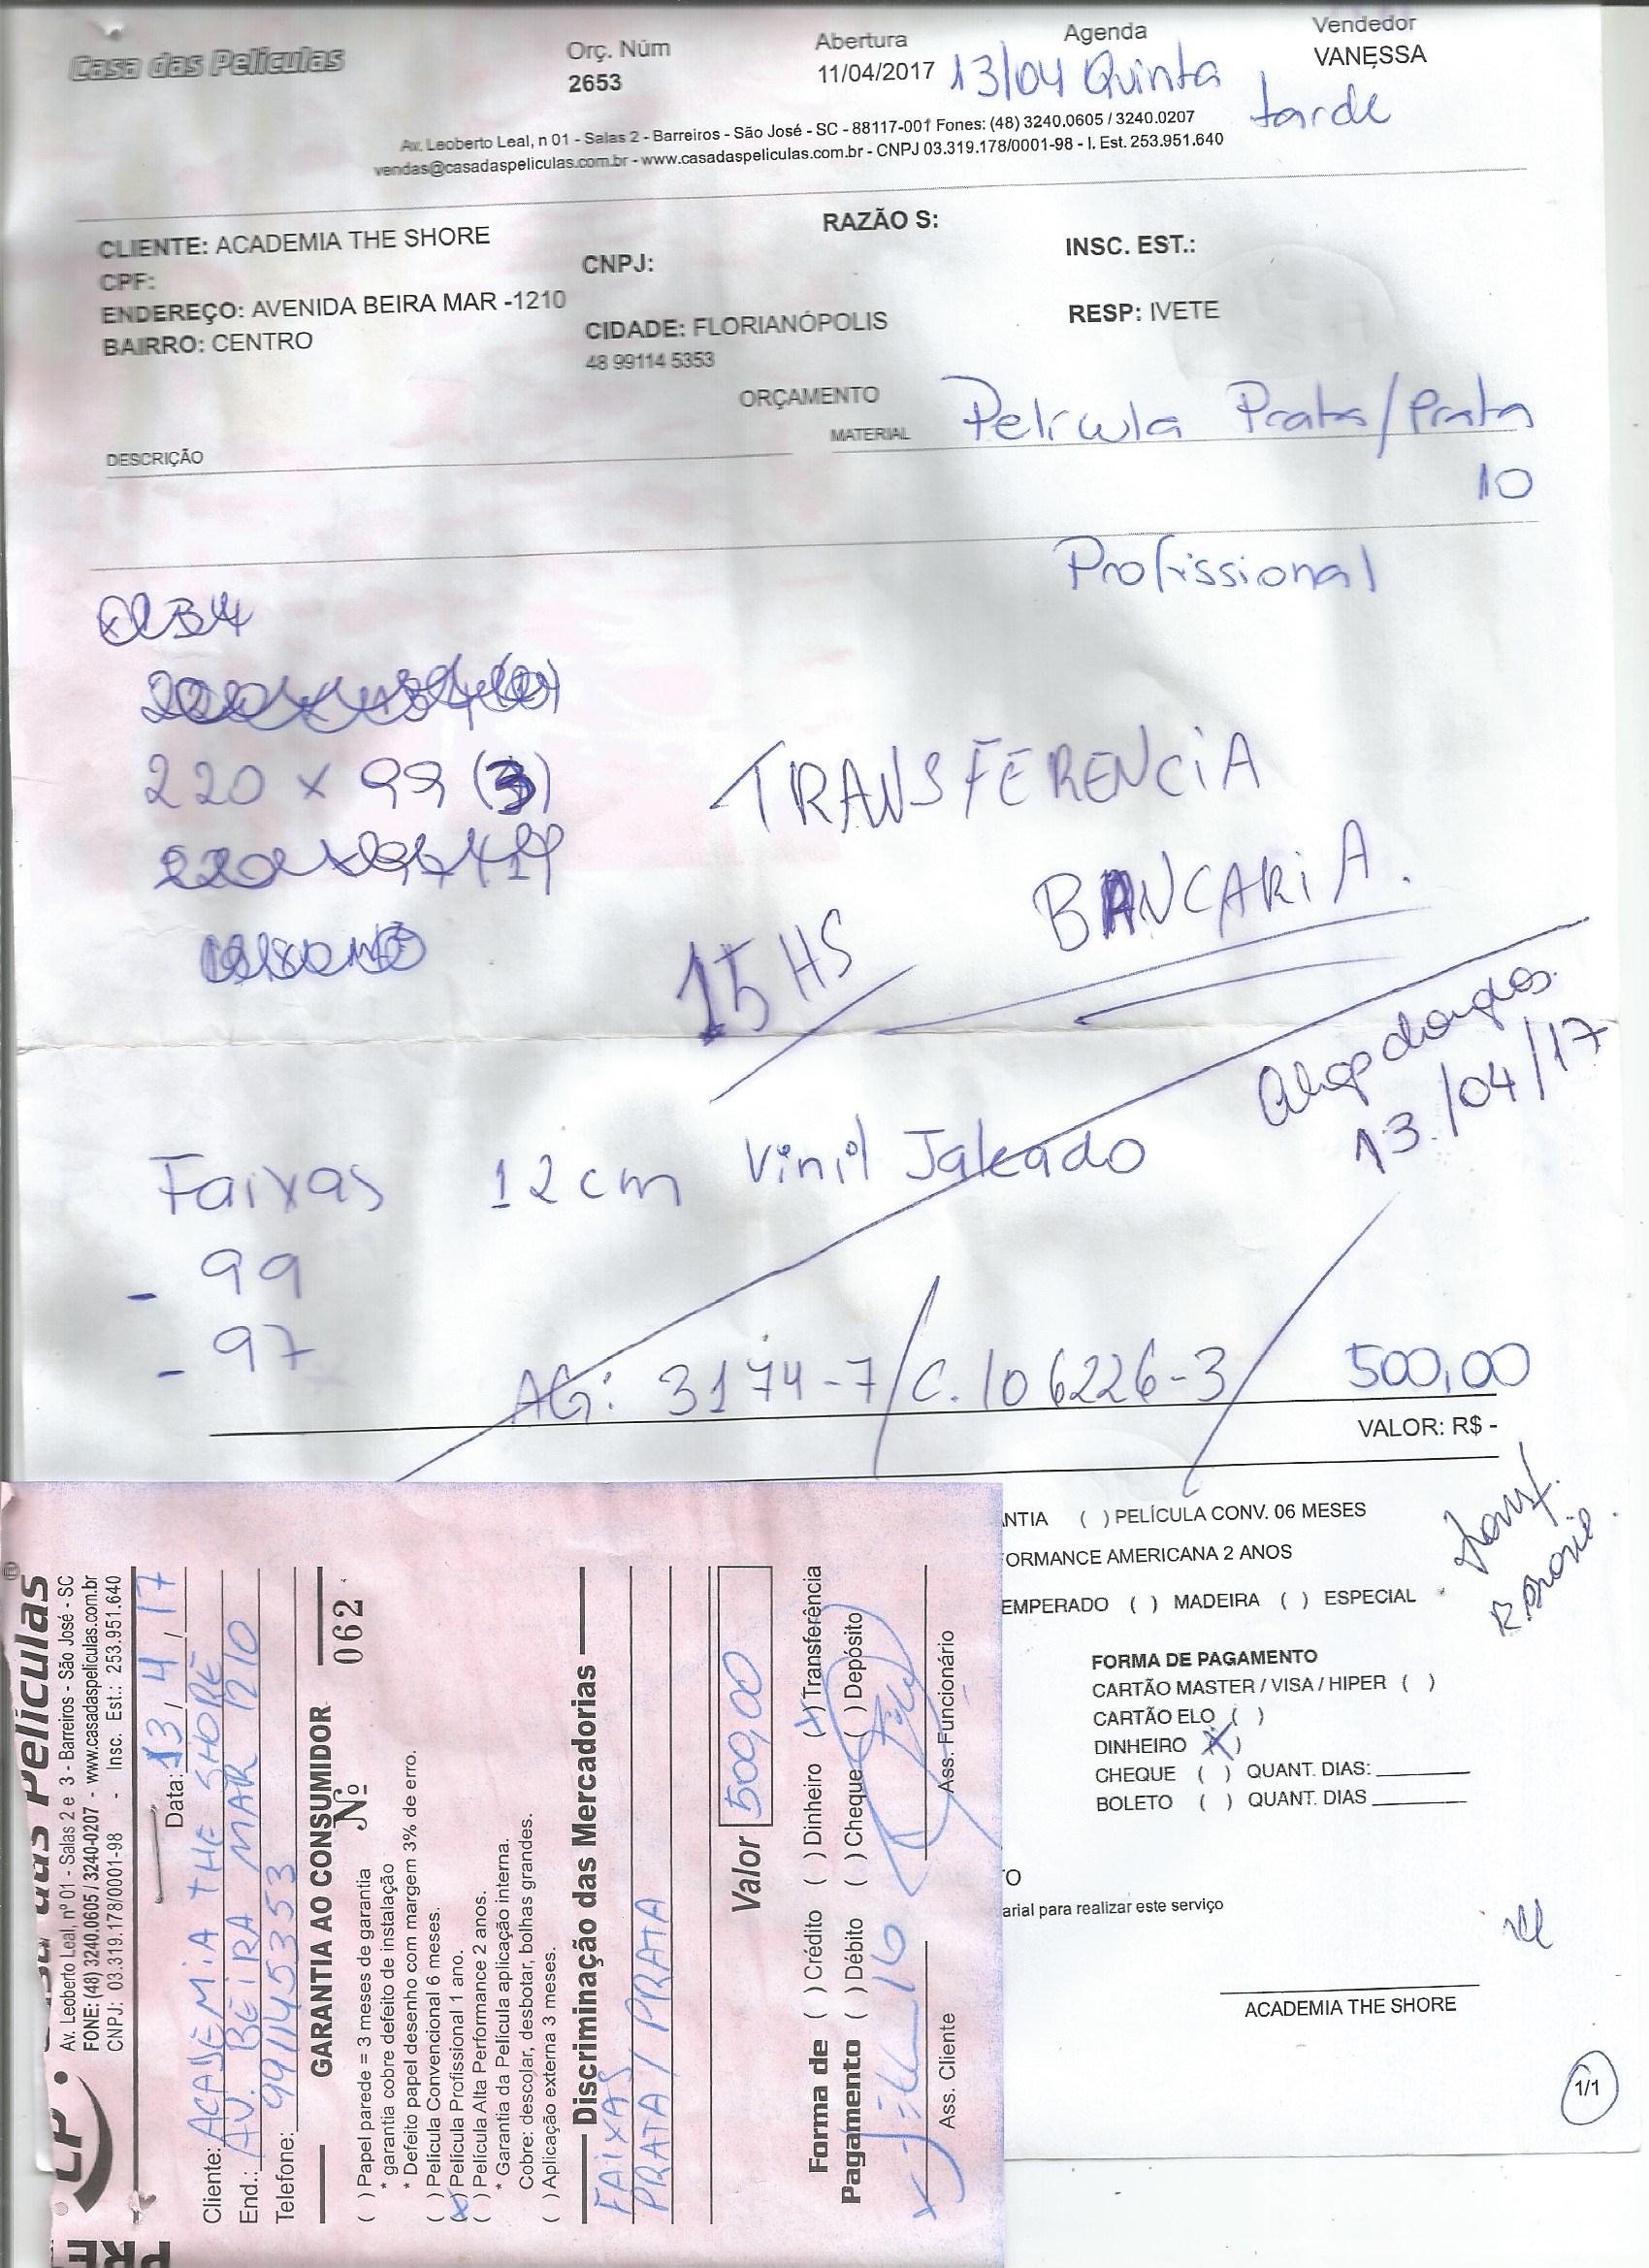 Casa das Películas
Orç. Núm
2653
Abertura
11/04/2017
Agenda
13/04 Quinta
tarde
Vendedor
VANESSA
Av. Leoberto Leal, n 01 - Salas 2 - Barreiros - São José - SC - 88117-001 Fones: (48) 3240.0605 / 3240.0207
vendas@casadaspeliculas.com.br - www.casadaspeliculas.com.br - CNPJ 03.319.178/0001-98 - I. Est. 253.951.640
CLIENTE: ACADEMIA THE SHORE
RAZÃO S:
CPF:
CNPJ:
INSC. EST.:
ENDEREÇO: AVENIDA BEIRA MAR -1210
BAIRRO: CENTRO
CIDADE: FLORIANÓPOLIS
RESP: IVETE
48 99114 5353
ORÇAMENTO
DESCRIÇÃO
MATERIAL
Película Prata/Prata
10
Profissional
220 x 99 (3)
TRANSFERENCIA
BANCARIA.
15 HS
13/04/17
Faixas 12cm Vinil Jateado
- 99
- 97
AG: 3174-7/C. 106226-3/
500,00
VALOR: R$ -
NTIA ( ) PELÍCULA CONV. 06 MESES
ORMANCE AMERICANA 2 ANOS
EMPERADO ( ) MADEIRA ( ) ESPECIAL
FORMA DE PAGAMENTO
CARTÃO MASTER / VISA / HIPER ( )
CARTÃO ELO ( )
DINHEIRO (X)
CHEQUE ( ) QUANT. DIAS:
BOLETO ( ) QUANT. DIAS
TO
arial para realizar este serviço
ACADEMIA THE SHORE
1/1
CP
das Películas
Av. Leoberto Leal, nº 01 - Salas 2 e 3 - Barreiros - São José - SC
FONE: (48) 3240.0605 / 3240-0207 - www.casadaspeliculas.com.br
CNPJ: 03.319.178/0001-98 - Insc. Est.: 253.951.640
Data: 13/4/17
Cliente: ACADEMIA THE SHORE
End.: AV. BEIRA MAR 1210
Telefone: 991145353
GARANTIA AO CONSUMIDOR
Nº 062
( ) Papel parede = 3 meses de garantia
* garantia cobre defeito de instalação
* Defeito papel desenho com margem 3% de erro.
( ) Película Convencional 6 meses.
(x) Película Profissional 1 ano.
( ) Película Alta Performance 2 anos.
* Garantia da Película aplicação interna.
Cobre: descolar, desbotar, bolhas grandes.
( ) Aplicação externa 3 meses.
Discriminação das Mercadorias
FAIXAS
PRATA / PRATA
Valor 500,00
Forma de Pagamento
( ) Crédito ( ) Dinheiro (x) Transferência
( ) Débito ( ) Cheque ( ) Depósito
Ass. Cliente
Ass. Funcionário